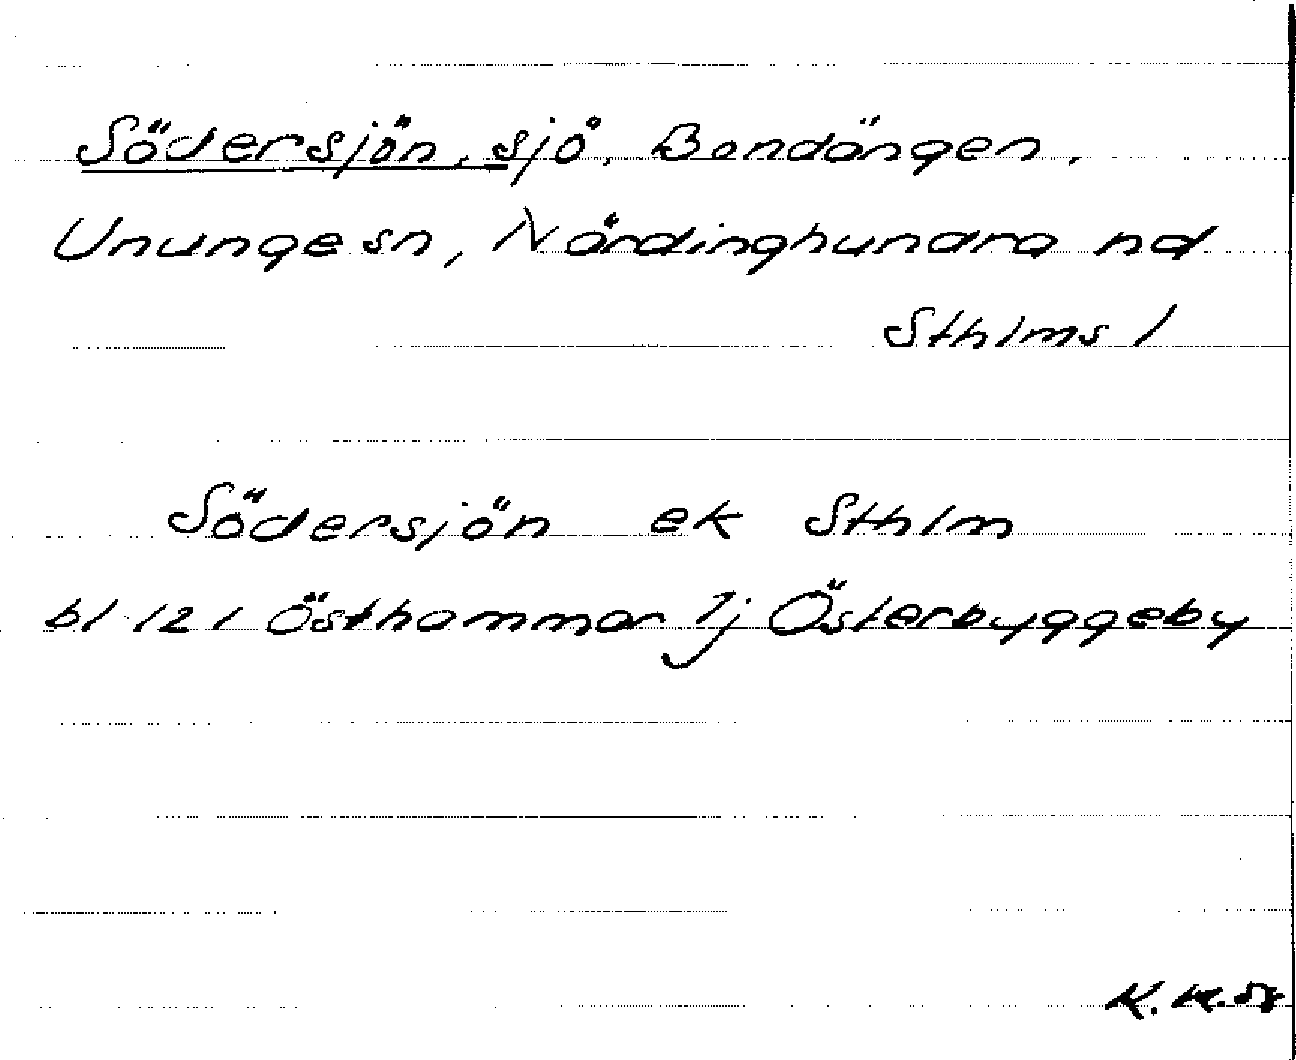 Södersjön, sjö, Bondängen,
Ununge sn, Närdinghundra hd
Sthlms l
Södersjön ek Sthlm
bl 121 Östhammar 7j Österbyggeby